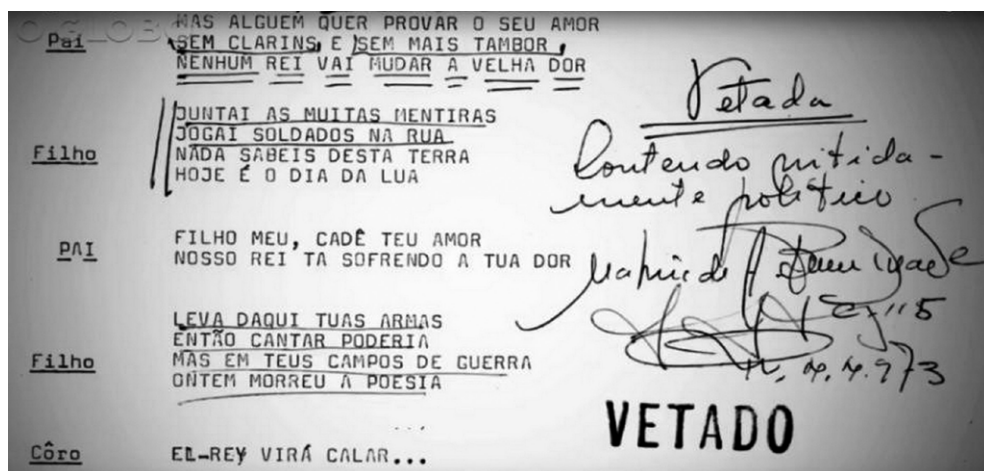 O GLOBO
MAS ALGUEM QUER PROVAR O SEU AMOR
Pai SEM CLARINS, E SEM MAIS TAMBOR,
NENHUM REI VAI MUDAR A VELHA DOR
JUNTAI AS MUITAS MENTIRAS
JOGAI SOLDADOS NA RUA
Filho NADA SABEIS DESTA TERRA
HOJE É O DIA DA LUA
PAI FILHO MEU, CADÊ TEU AMOR
NOSSO REI TA SOFRENDO A TUA DOR
LEVA DAQUI TUAS ARMAS
ENTÃO CANTAR PODERIA
Filho MAS EM TEUS CAMPOS DE GUERRA
ONTEM MORREU A POESIA
Côro EL-REY VIRÁ CALAR...
Vetada
Contendo nitida-
mente politico
VETADO